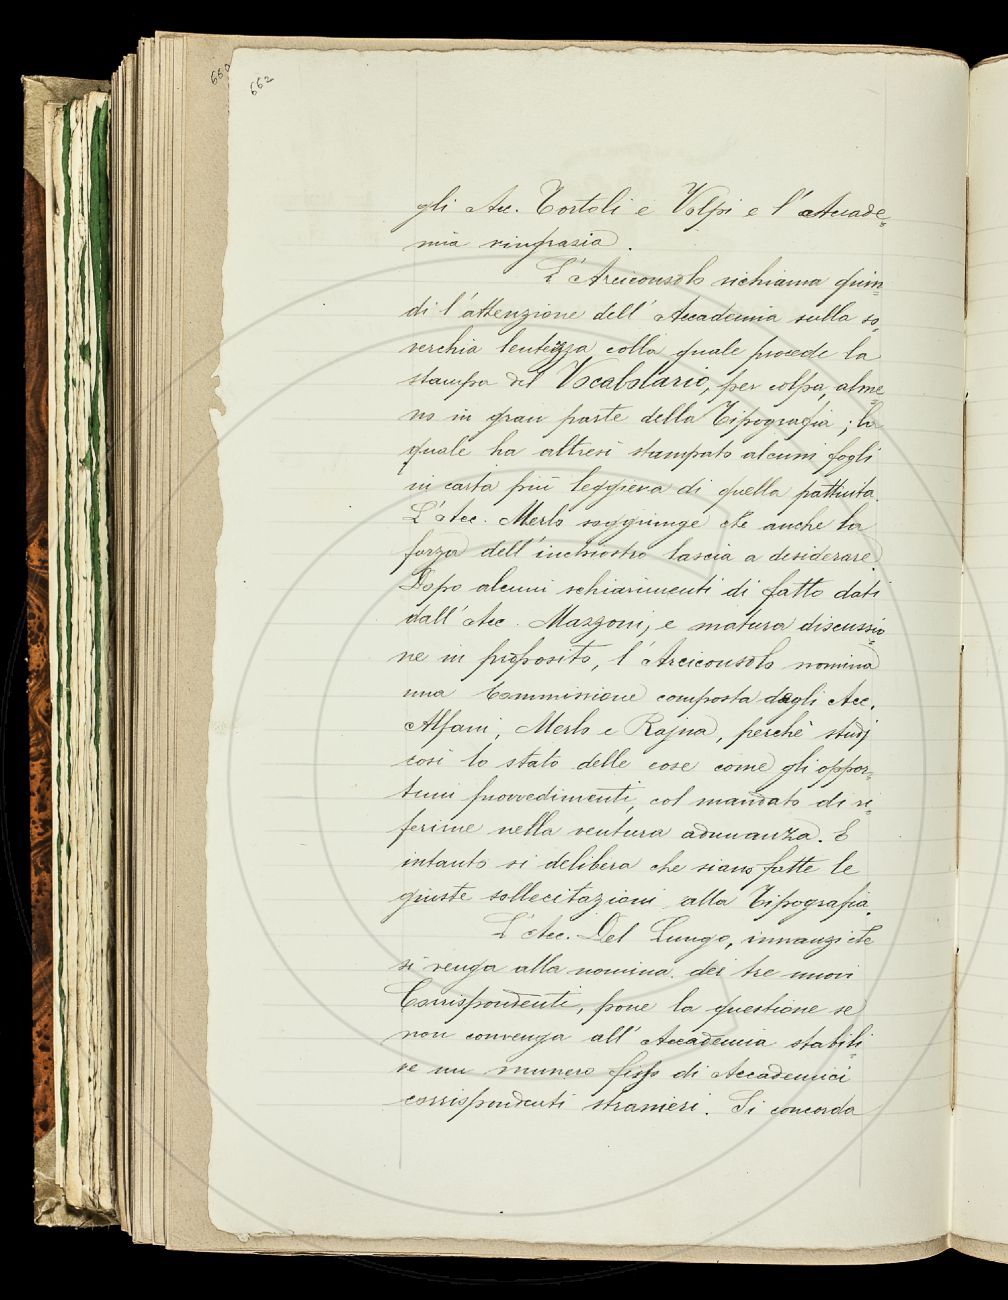 660
662
gli Acc. Tortoli e Volpi e l'Accade=
mia ringrazia.
L'Arciconsolo richiama quin=
di l'attenzione dell'Accademia sulla so=
verchia lentezza colla quale procede la
stampa del Vocabolario, per colpa, alme=
no in gran parte della Tipografia; la
quale ha altresì stampato alcuni fogli
in carta più leggiera di quella pattuita.
L'Acc. Merlo soggiunge che anche la
forza dell'inchiostro lascia a desiderare.
Dopo alcuni schiarimenti di fatto dati
dall'Acc. Mazzoni, e matura discussio=
ne in proposito, l'Arciconsolo nomina
una Commissione composta degli Acc.
Alfani, Merlo e Rajna, perchè studj
così lo stato delle cose come gli oppor=
tuni provvedimenti, col mandato di ri=
ferirne nella ventura adunanza. E
intanto si delibera che siano fatte le
giuste sollecitazioni alla Tipografia.
L'Acc. Del Lungo, innanzi che
si venga alla nomina dei tre nuovi
Corrispondenti, pone la questione se
non convenga all'Accademia stabili=
re un numero fisso di Accademici
corrispondenti stranieri. Si concorda